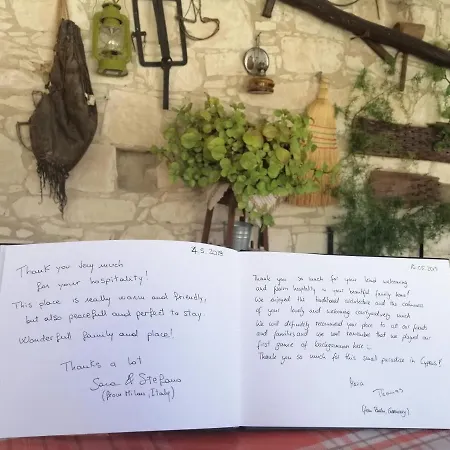 4.5.2019
Thank you very much
for your hospitality!
This place is really warm and friendly,
but also peacefull and perfect to stay.
Wonderfull family and place!
Thanks a lot
Sara & Stefano
(from Milano, Italy)
Thank you so much for your kind welcoming
and warm hospitality in your beautiful family home!
We enjoyed the traditional architecture and the calmness
of your lovely and welcoming courtyard very much
We will definitely recommend your place to all our friends
and families and we will remember that we played our
first game of backgammon here :-)
Thank you so much for this small paradise in Cyprus!
Thomas
(from Berlin, Germany)